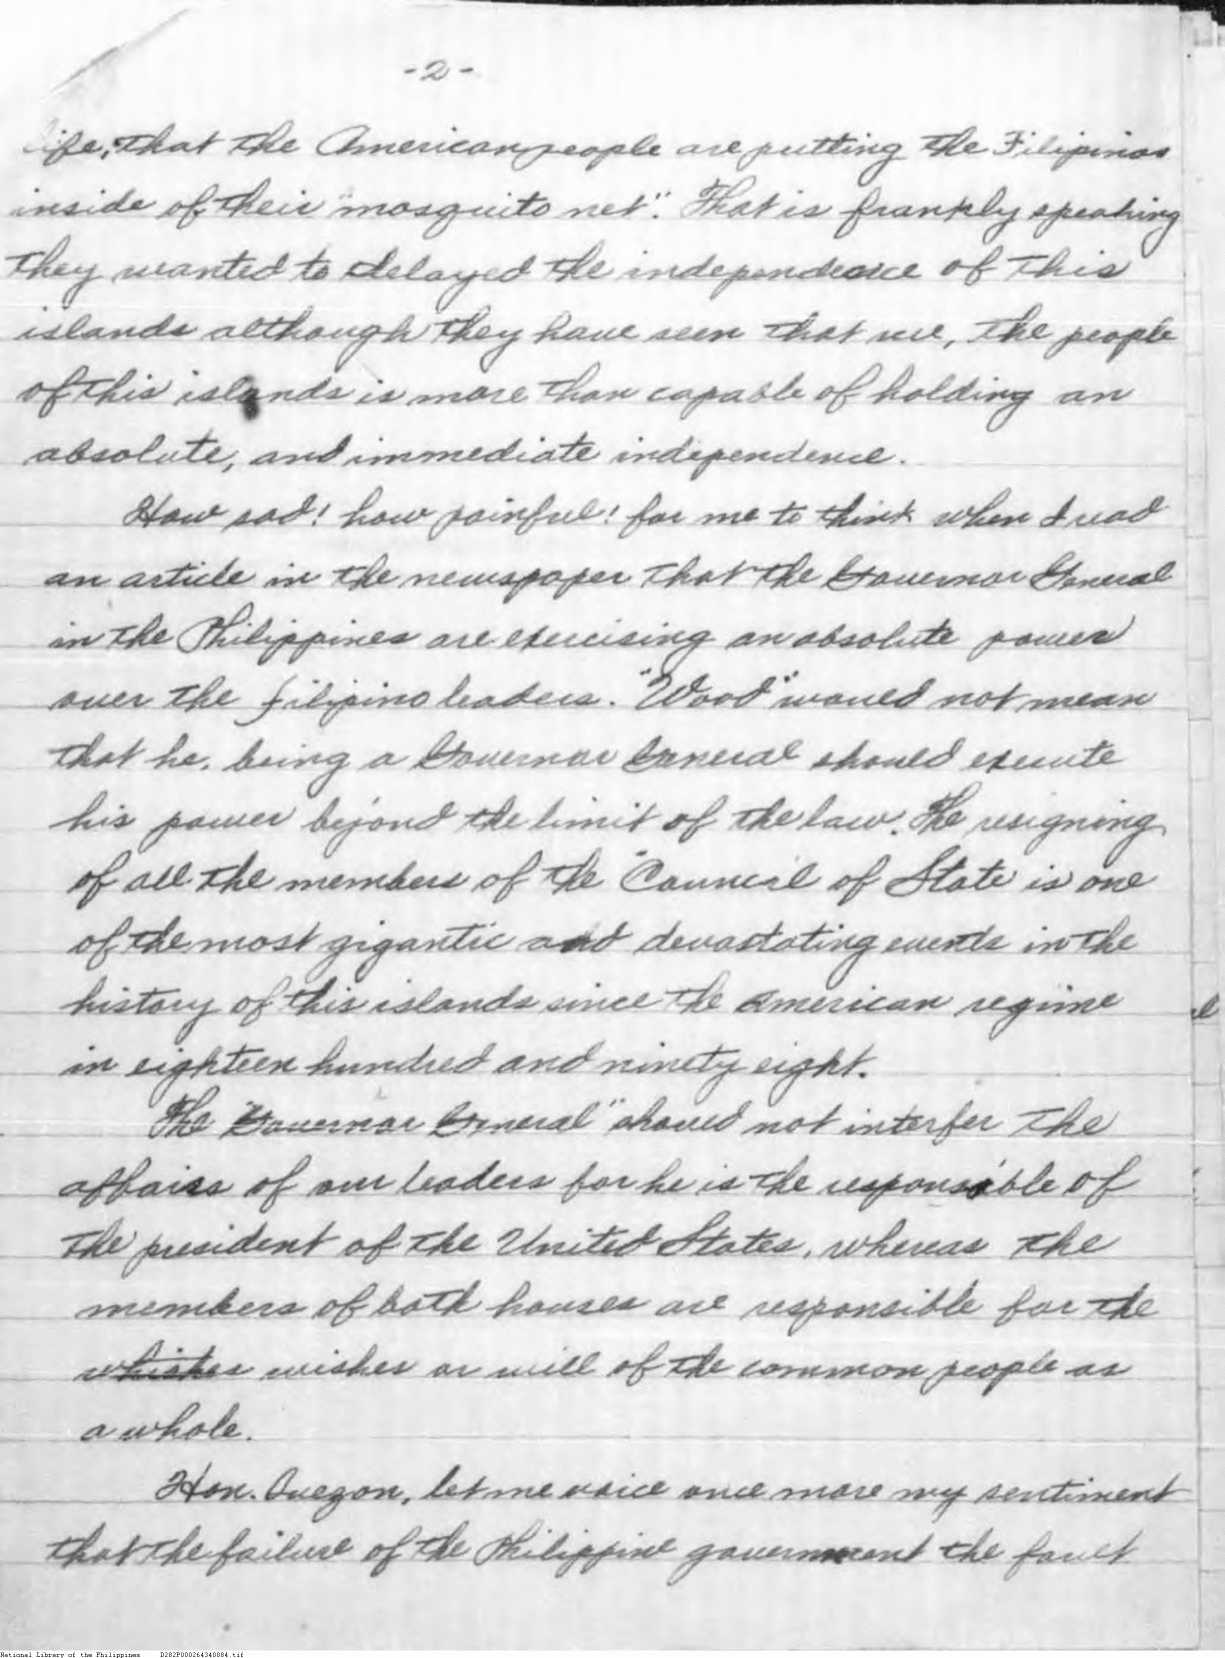 - 2 -
life, that the American people are putting the Filipinos
inside of their "mosquito net". That is frankly speaking
they wanted to delayed the independence of this
islands although they have seen that we, the people
of this islands is more than capable of holding an
absolute, and immediate independence.
How sad! how painful! for me to think when I read
an article in the newspaper that the Governor General
in the Philippines are exercising an absolute power
over the filipino leaders. "Wood" would not mean
that he, being a Governor General should execute
his power beyond the limit of the law. The resigning
of all the members of the "Council of State is one
of the most gigantic and devastating events in the
history of this islands since the American regime
in eighteen hundred and ninety eight.
The "Governor General" should not interfer the
affairs of our leaders for he is the responsible of
the president of the United States, whereas the
members of both houses are responsible for the
whishes wishes or will of the common people as
a whole.
Hon. Quezon, let me voice once more my sentiment
that the failure of the Philippine government the fault
National Library of the Philippines D282P000264340084.tif